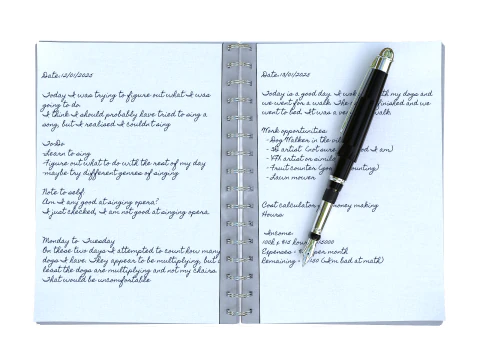 Date: 12/01/2025
Today I was trying to figure out what I was
going to do.
I think I should probably have tried to sing a
song, but I realised I couldn't sing
ToDo
Learn to sing
Figure out what to do with the rest of my day
maybe try different genres of singing
Note to self:
Am I any good at singing opera?
I just checked, I am not good at singing opera.
Monday to Tuesday
On these two days I attempted to count how many
dogs I have. They appear to be multiplying, but
least the dogs are multiplying and not my chairs.
That would be uncomfortable
Date: 13/01/2025
Today is a good day. I with my dogs and
we went for a walk. The finished and we
went to bed. It was a walk.
Work opportunities
- Dog Walker in the
- artist (not sure I am)
- VFX artist on
- Fruit counter (counting)
- Lawn mower
Cost calculator money making
Hours
Income:
100h x $15
Expenses = per month
Remaining = (I'm bad at math)